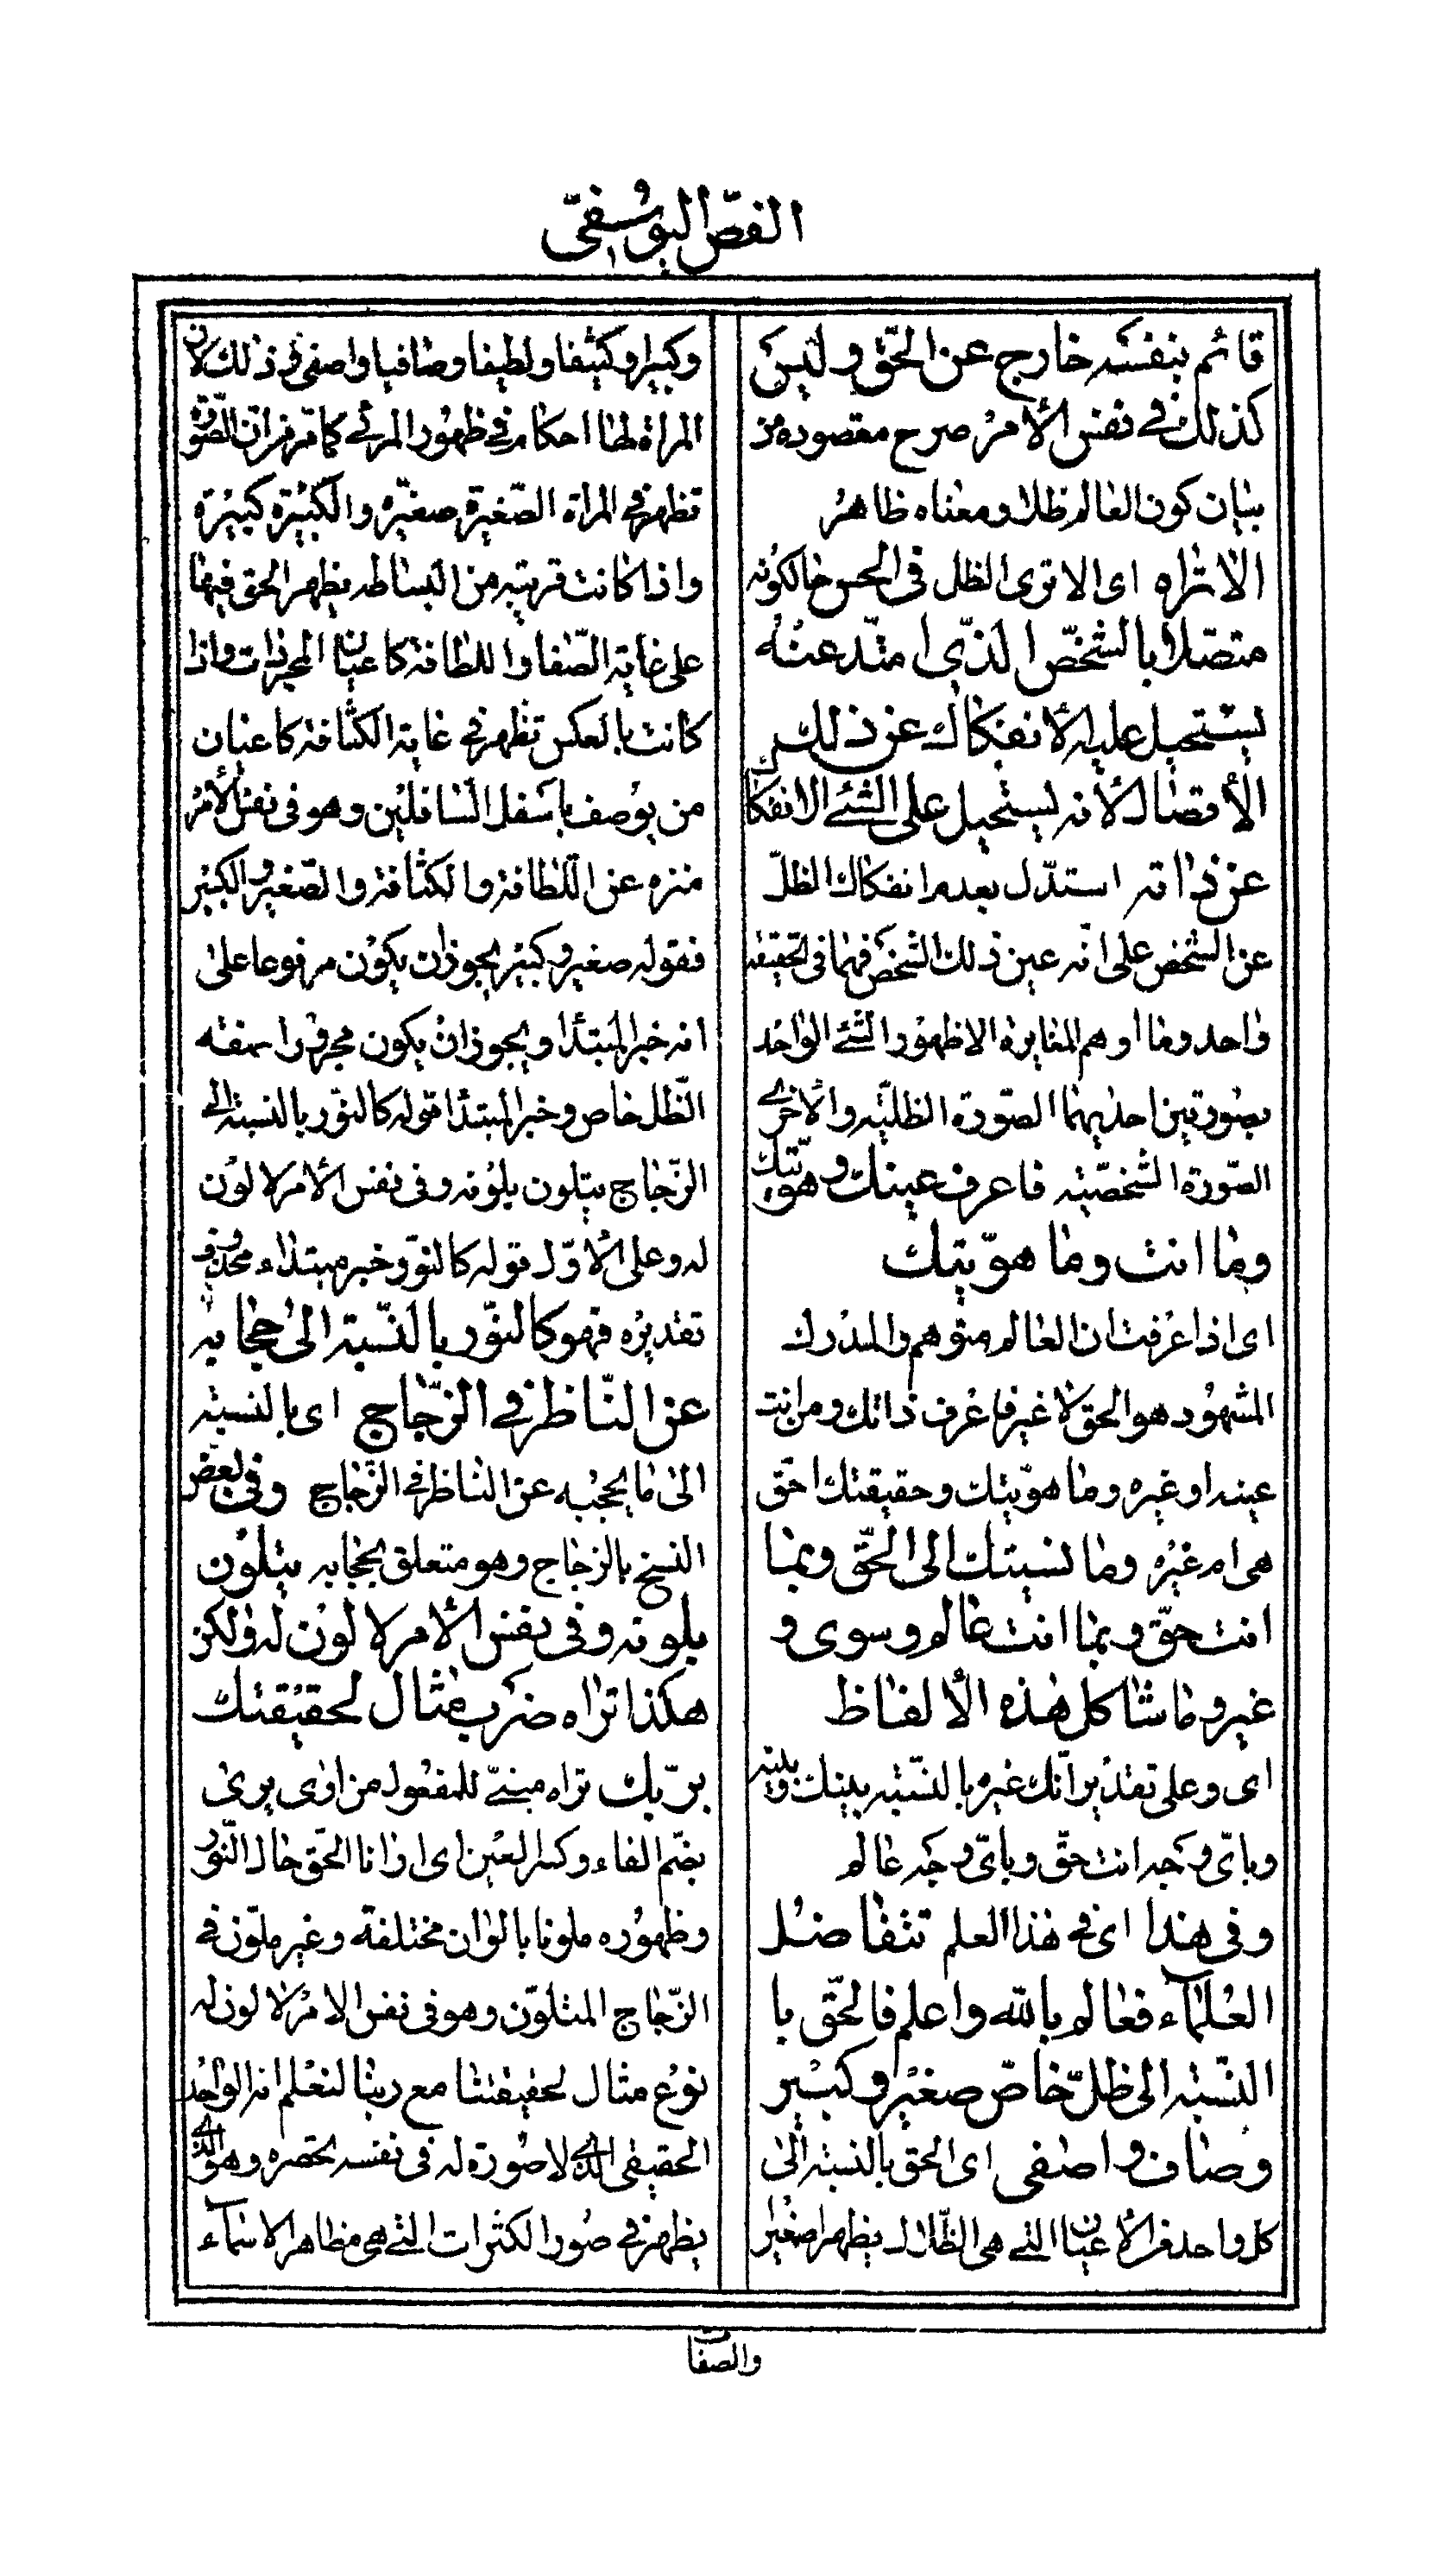 الفصّ اليوسفيّ
قائم بنفسه خارج عن الحقّ وليس
كذلك في نفس الأمر صرح مقصوده من
بيان كون العالم ظلا ومعناه ظاهر
الا تراه اى الا ترى الظل فى الحس حالكونه
متصّلا بالشخص الّذى امتدّ عنه
يستحيل عليه الأنفكاك عن ذلك
الأتصال لأنه يستحيل على الشئ الانفكاك
عن ذاته استدّل بعدم انفكاك الظلّ
عن الشخص على انّه عين ذلك الشخص فهما فى الحقيقه
واحد وما اوهم المغايرة الا ظهور الشئ الواحد
بصورتين احديهما الصّورة الظليّه والأخرى
الصّورة الشخصيّه فاعرف عينك وهويّتك
وما انت وما هوّيتك
اى اذا عرفت ان العالم متوهم والمدرك
المشهود هو الحق لا غير فاعرف ذاتك ومن انت
عينه او غيره وما هوّيتك وحقيقتك احّق
هى ام غيره وما نسبتك الى الحّق وبما
انت حقّ وبما انت عالم وسوى و
غير وما شاكل هذه الألفاظ
اى وعلى تقدير انّك غيره بالنسّبه بينك وبينه
وباىّ وجه انت حقّ وباىّ وجه عالم
وفى هذا اى فى هذا العلم تتفاضل
العلمآء فعالم بالله واعلم فالحّق با
النسّبه الى ظلّ خاصّ صغير وكبير
وصاف واصفى اى الحق بالنسبة الى
كل واحد من الأعيان التى هى الظّلال يظهر صغيرا
وكبيرا وكثيفا ولطيفا وصافيا واصفى فى ذلك لان
المراة لها احكام فى ظهور المرئى كما مرّ من ان الصّورة
تظهر فى المراة الصّغيرة صغيرة والكبيرة كبيرة
واذا كانت قريبه من البساطه يظهر الحق فيها
على غاية الصّفا واللطافة كاعيان المجردات واذا
كانت بالعكس تظهر فى غاية الكثافه كاعيان
من يوصف باسفل السّافلين وهو فى نفس الأمر
منزه عن اللّطافة والكثافة والصّغير والكبير
فقوله صغير وكبير يجوز ان يكون مرفوعا على
انه خبر المبتدأ ويجوز ان يكون مجرورا صفه
الظّل خاص وخبر المبتدأ قوله كالنوّر بالنسبة الى
الزّجاج يتلون بلونه وفى نفس الأمر لا لون
له وعلى الأوّل قوله كالنوّر خبر مبتداء محذوف
تقديره فهو كالنوّر بالنسّبة الى حجابه
عن النّاظر فى الزّجاج اى بالنسبته
الى ما يحجبه عن الناظر فى الزّجاج وفى بعض
النسخ بالزجاج وهو متعلق بحجابه يتلون
بلونه وفى نفس الأمر لا لون له ولكن
هكذا تراه ضرب مثال لحقيقتك
بربّك تراه مبنىّ للمفعول من ارى يرى
بضّم الفاء وكسر العين اى ارانا الحّق حال النّور
وظهوره ملونا بالوان مختلفة وغير ملوّن فى
الزّجاج المتلوّن وهو فى نفس الامر لا لون له
نوع مثال لحقيقتنا مع ربنا لنعلم انه الواحد
الحقيقى الذى لا صورة له فى نفسه تحصره وهو الذى
يظهر فى صور الكثرات التى هى مظاهر الاسمآء
والصفات